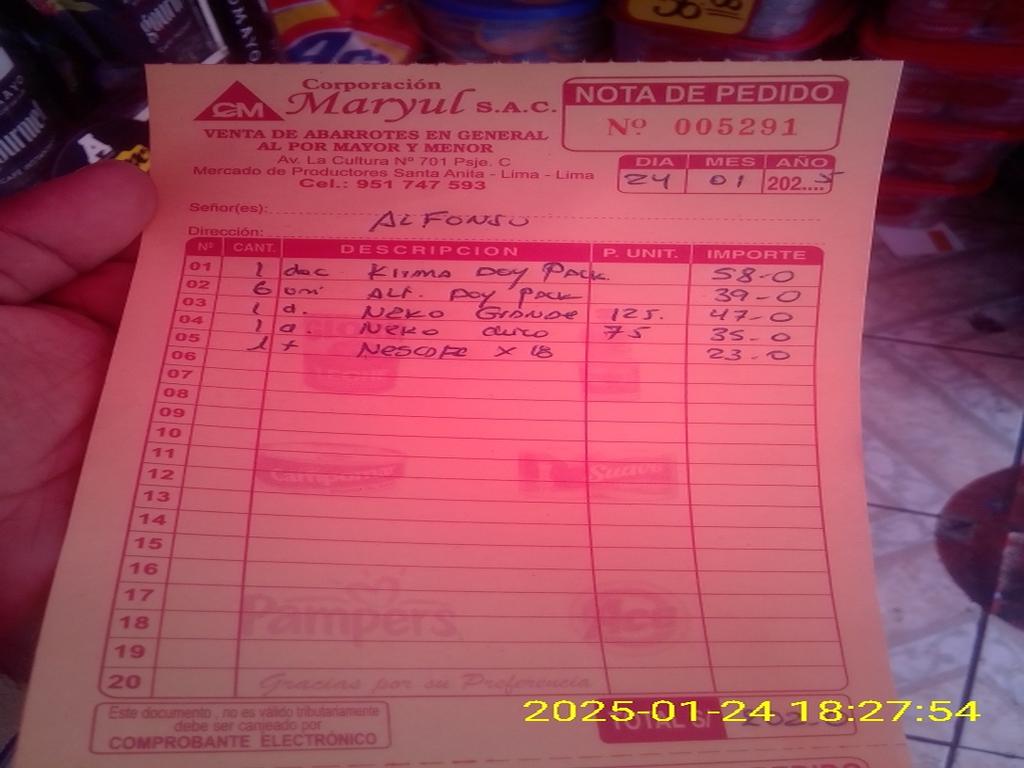 Corporación
CM Maryul S.A.C.
VENTA DE ABARROTES EN GENERAL
AL POR MAYOR Y MENOR
Av. La Cultura Nº 701 Psje. C
Mercado de Productores Santa Anita - Lima - Lima
Cel.: 951 747 593
NOTA DE PEDIDO
Nº 005291
DIA MES AÑO
24 01 202....5
Señor(es): ALFONSO
Dirección:
Nº CANT. DESCRIPCION P. UNIT. IMPORTE
01 1 doc Kirma Doy Pack 58-0
02 6 uni Alt. Doy Pack 39-0
03 1 d. Neko Grande 125. 47-0
04 1 d. Neko chico 75 35-0
05 1 Nescafe x 18 23-0
06
07
08
09
10
11
12
13
14
15
16
17
18
19
20
Campomar
Suave
Pampers
Ace
Gracias por su Preferencia
Este documento, no es válido tributariamente
debe ser canjeado por
COMPROBANTE ELECTRÓNICO
TOTAL S/
2025-01-24 18:27:54